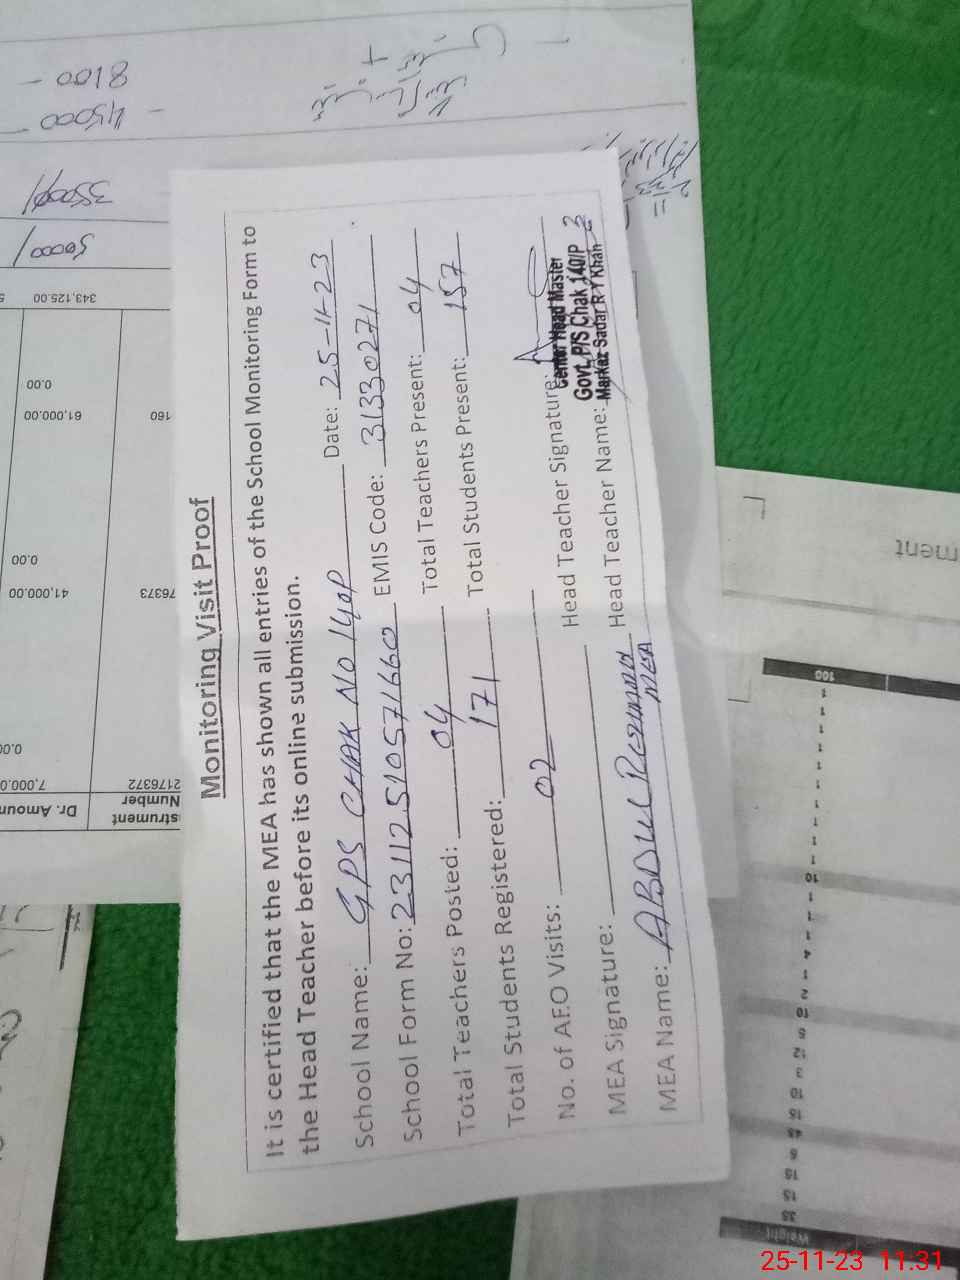 Monitoring Visit Proof
It is certified that the MEA has shown all entries of the School Monitoring Form to
the Head Teacher before its online submission.
School Name: GPS CHAK NO 140P Date: 25-11-23
School Form No: 23112510571660 EMIS Code: 31330271
Total Teachers Posted: 04 Total Teachers Present: 04
Total Students Registered: 171 Total Students Present: 157
No. of AEO Visits: 02
MEA Signature: Head Teacher Signature:
MEA Name: ABDUL REHMAN Head Teacher Name:
MEA
Center Head Master
Govt. P/S Chak 140/P
Markaz Sadar R Y Khan
8100 -
45000 -
35000/
50000/
343,125.00
0.00
61,000.00 160
0.00
41,000.00 76373
0.00
7,000.0 2176372
Dr. Amoun strument
Number
ment
100
1
1
1
1
1
1
1
1
10
1
1
1
1
2
10
5
12
3
10
15
45
6
15
15
35
Weight
25-11-23 11:31